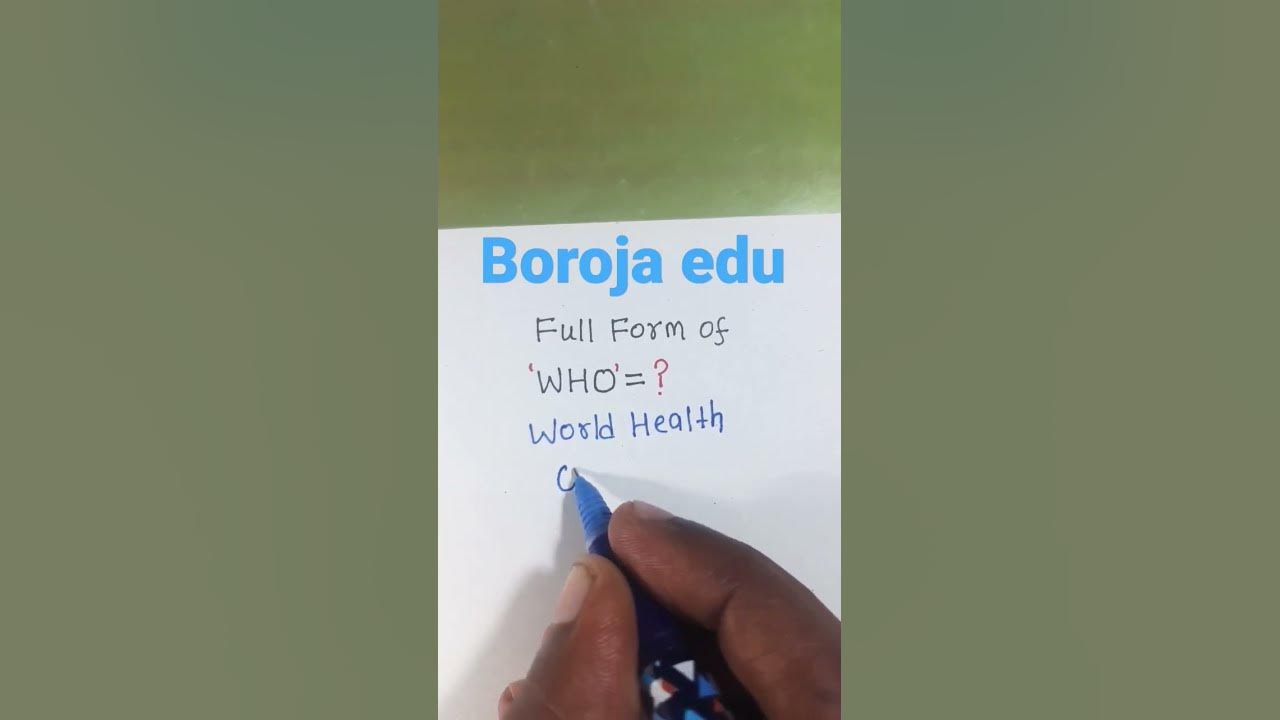 Boroja edu
Full Form of
'WHO' = ?
World Health
O